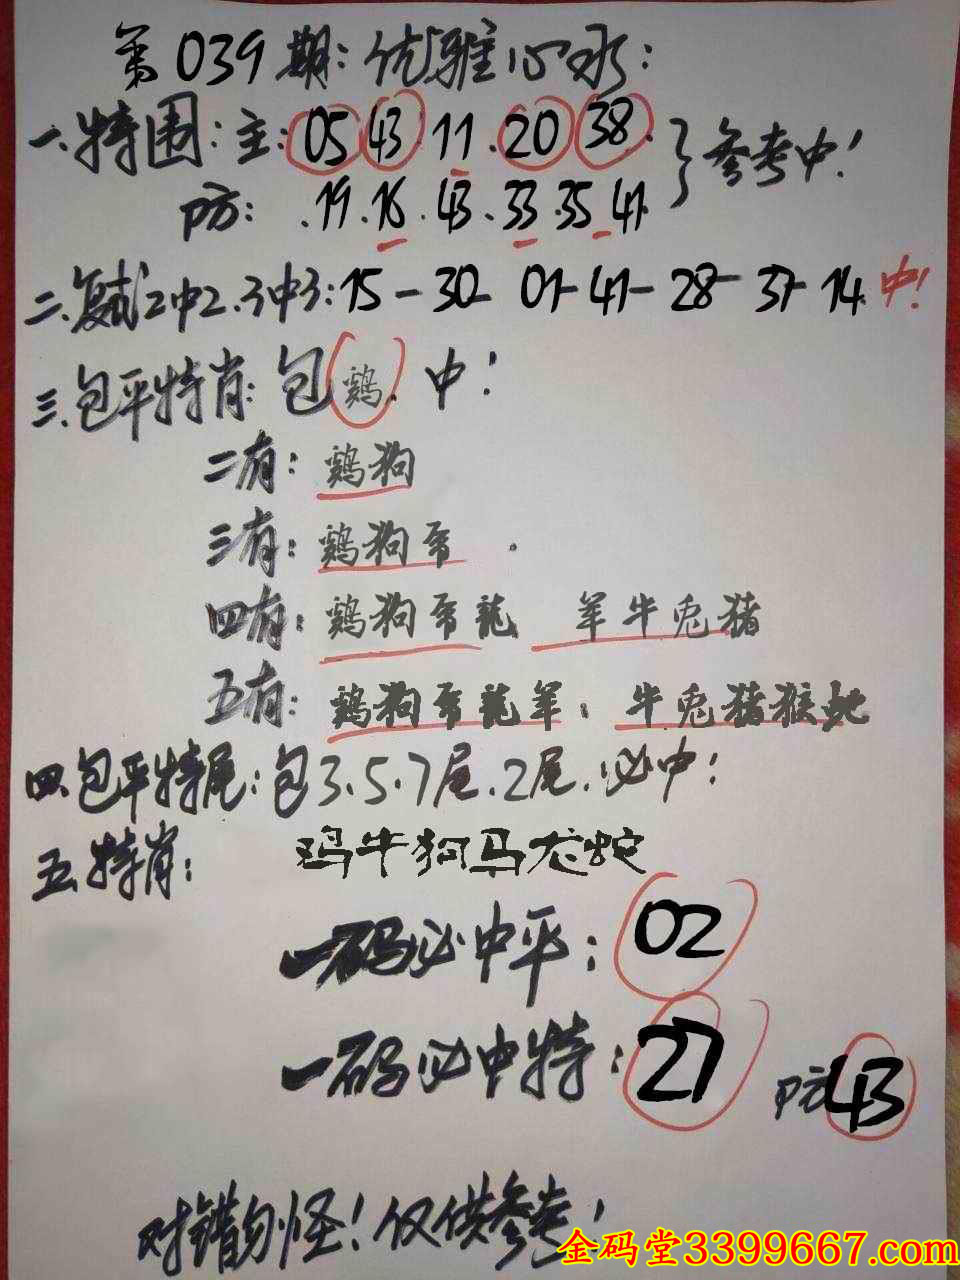 第039期:优雅心水:
一.特围:主:05 43.11.20 38.
防:.19.16.43.33.35 41.
}参考中!
二.复式2中2.3中3:15-30-01-41-28-37-14.中!
三.包平特肖:包鷄.中!
二有:鷄狗
三有:鷄狗.
四有:鷄狗 龍 羊牛兎猪
五有:鷄狗 龍羊:牛兎猪猴蛇
四.包平特尾:包3.5.7尾.2尾.必中!
五.特肖:鸡牛狗马龙蛇
一码必中平:02
一码必中特:27 防43
对错勿怪!仅供参考!
金码堂3399667.com